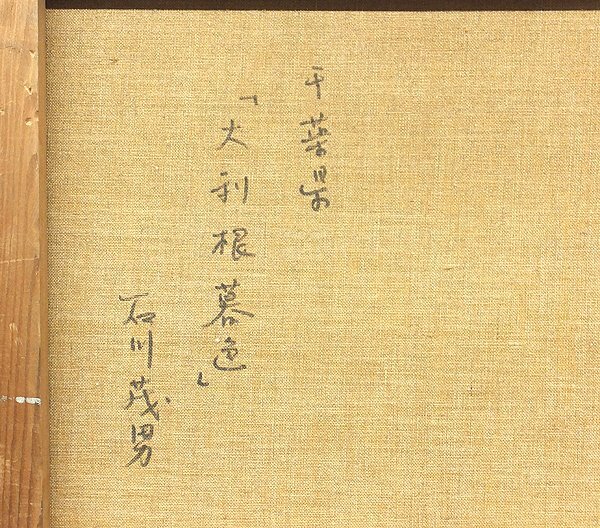 千葉県
「大利根暮色」
石川茂男